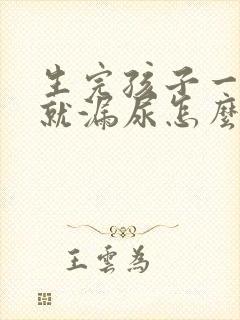 生完孩子一
就漏尿怎麼
王雲為